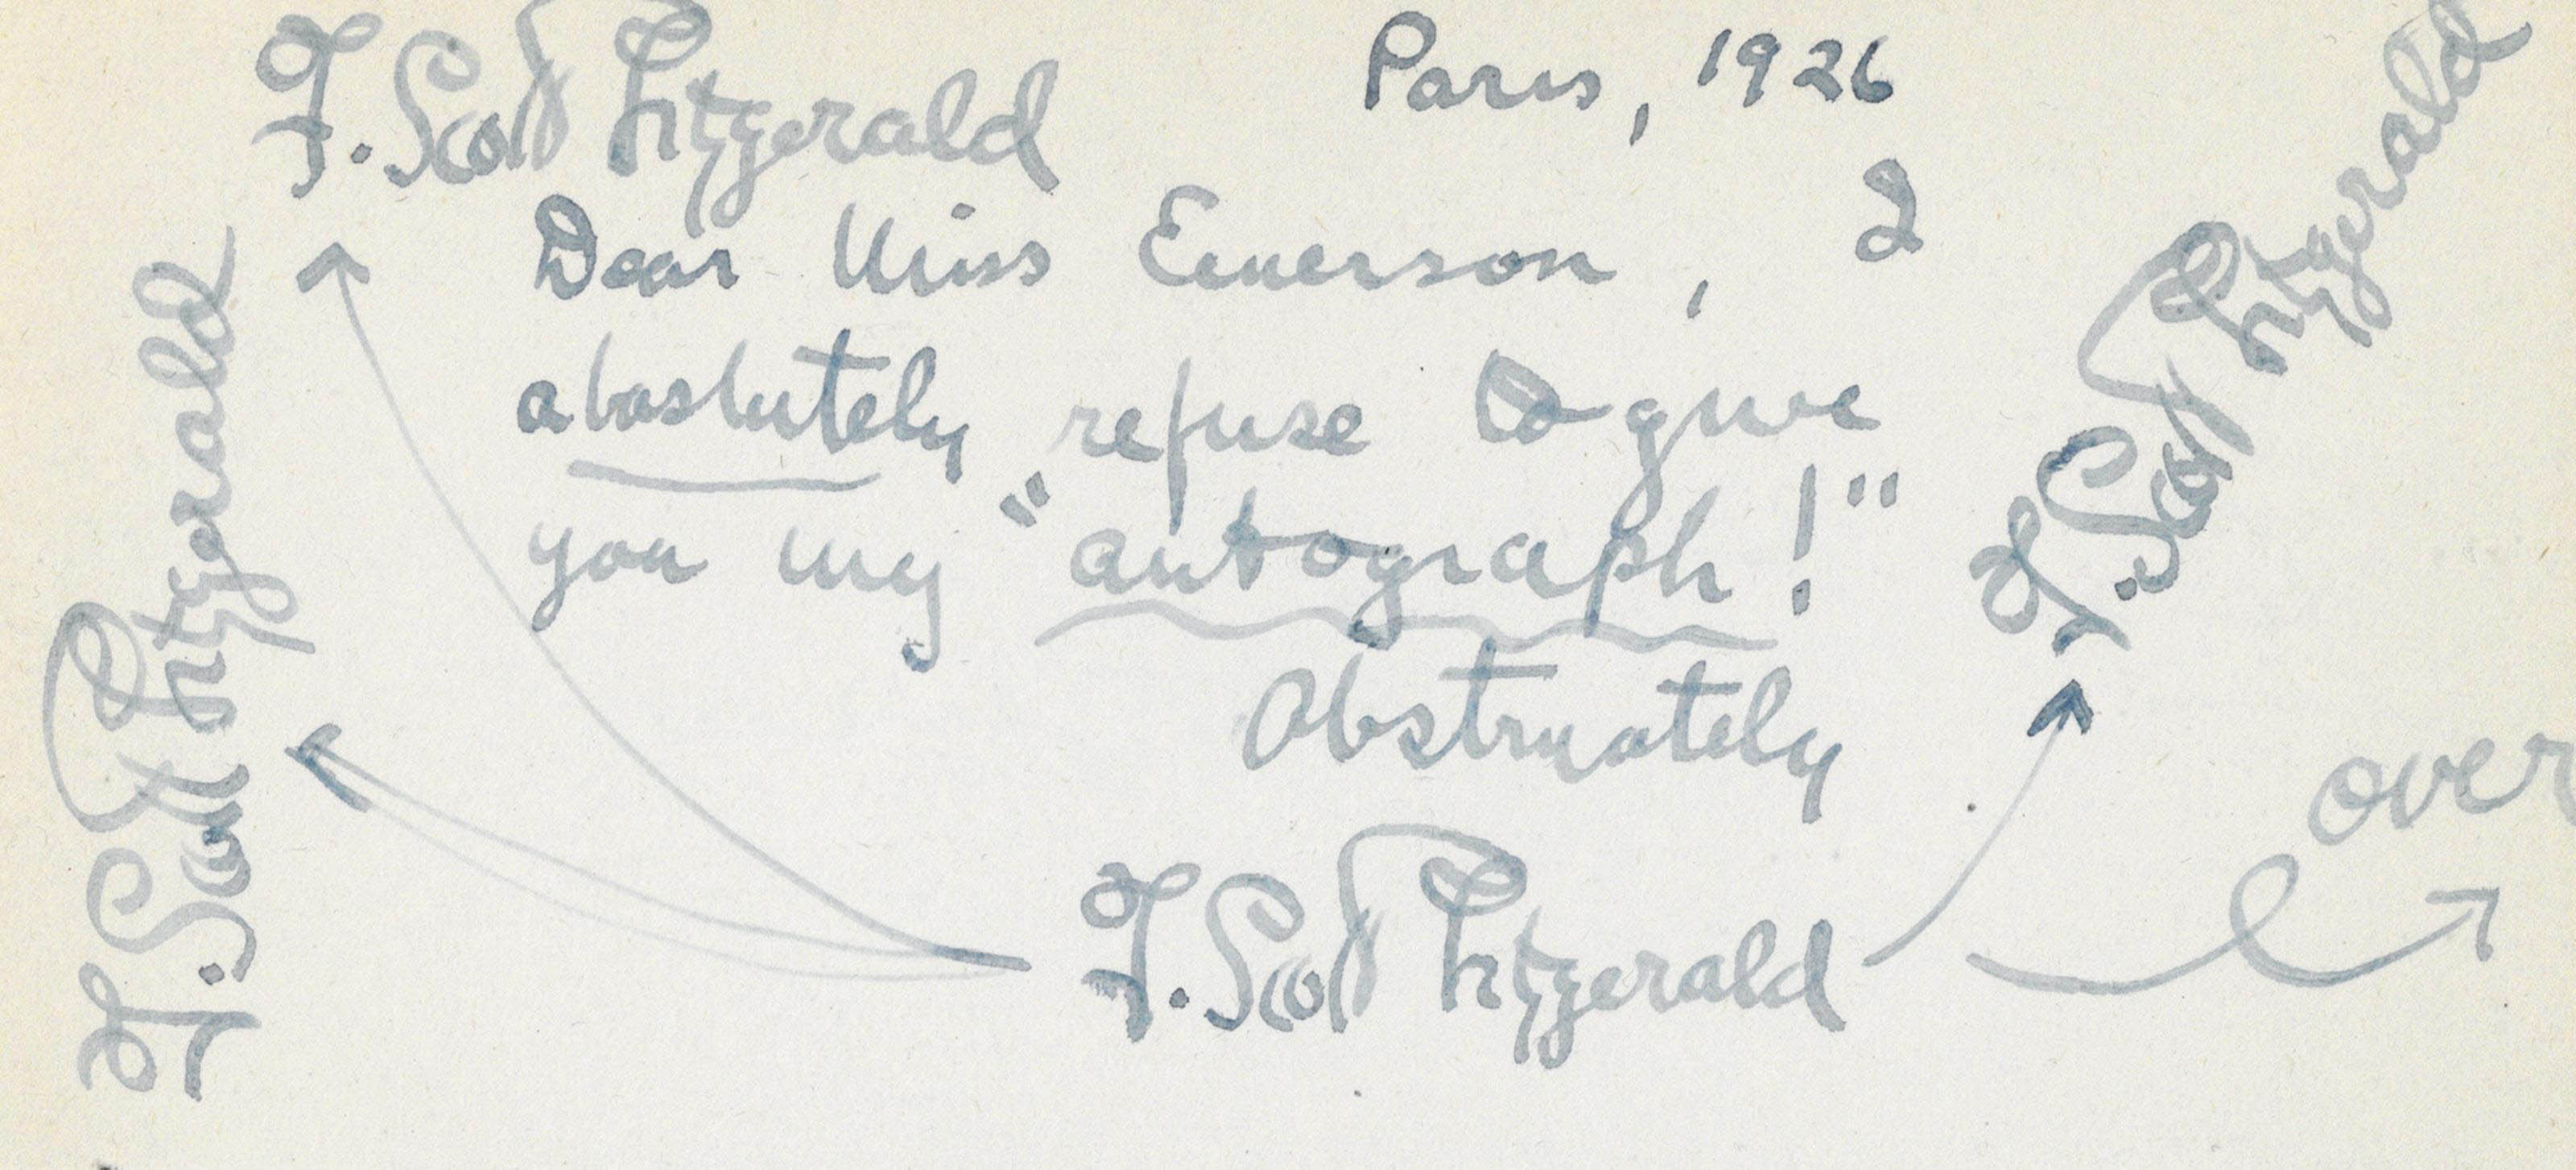 F. Scott Fitzgerald
Paris, 1926
Dear Miss Emerson, I
aboslutely refuse to give
you my "autograph!"
Obstinately
F. Scott Fitzgerald
F. Scott Fitzgerald
F. Scott Fitzgerald
over